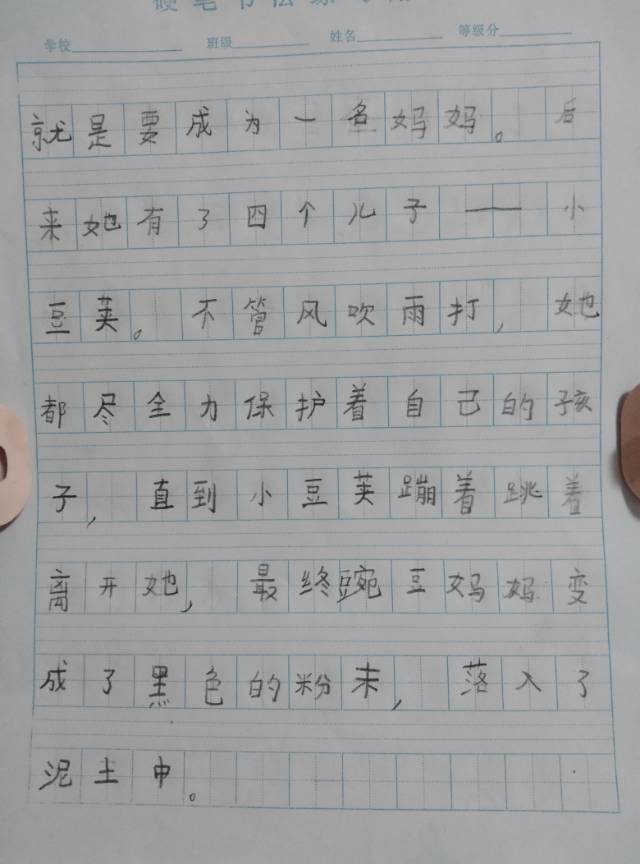 学校 班级 姓名 等级分
就是要成为一名妈妈。后
来她有了四个儿子——小
豆荚。不管风吹雨打,她
都尽全力保护着自己的孩
子,直到小豆荚蹦着跳着
离开她,最终豌豆妈妈变
成了黑色的粉末,落入了
泥土中。